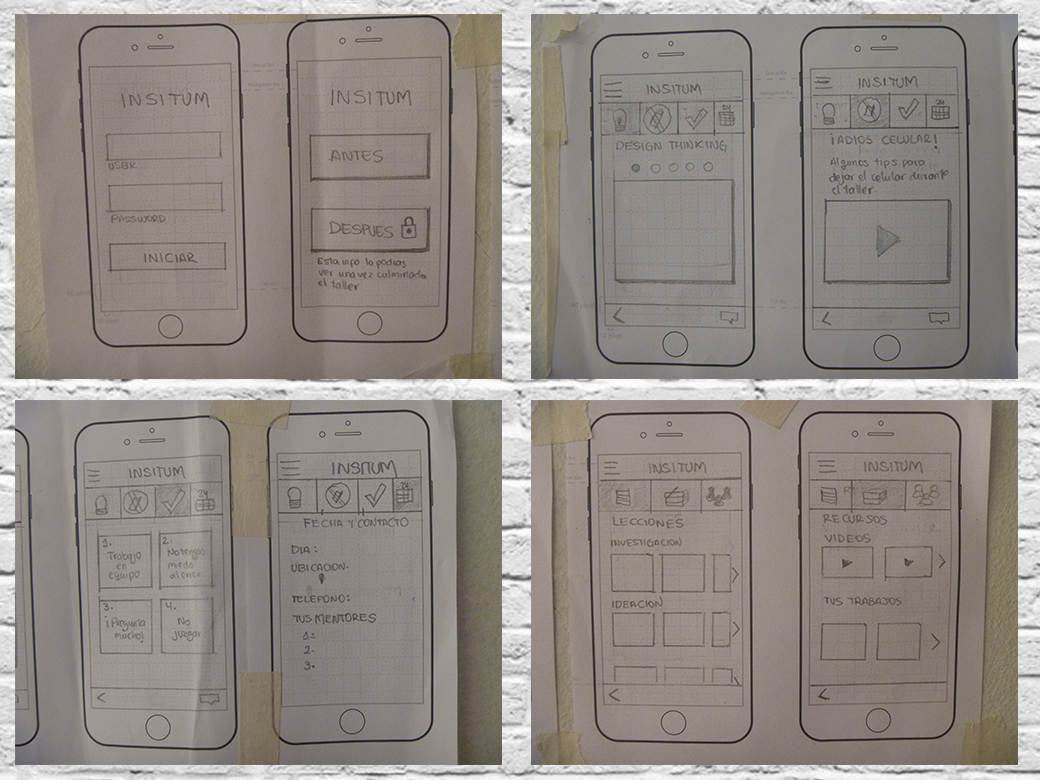 INSITUM
USER
PASSWORD
INICIAR
INSITUM
ANTES
DESPUES
Esta info la podras
ver una vez culminado
el taller
INSITUM
DESIGN THINKING
INSITUM
24
¡ADIOS CELULAR!
Algunos tips para
dejar el celular durante
el taller
INSITUM
24
1.
Trabajo
en
equipo
2.
No tengas
miedo
al error
3.
¡Pregunta
mucho!
4.
No
juzgar
INSITUM
24
FECHA Y CONTACTO
DIA:
UBICACION:
TELEFONO:
TUS MENTORES
1.
2.
3.
INSITUM
LECCIONES
INVESTIGACION
IDEACION
INSITUM
RECURSOS
VIDEOS
TUS TRABAJOS